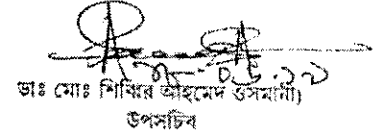 ডাঃ মোঃ শিব্বির আহমেদ ওসমানী)
উপসচিব